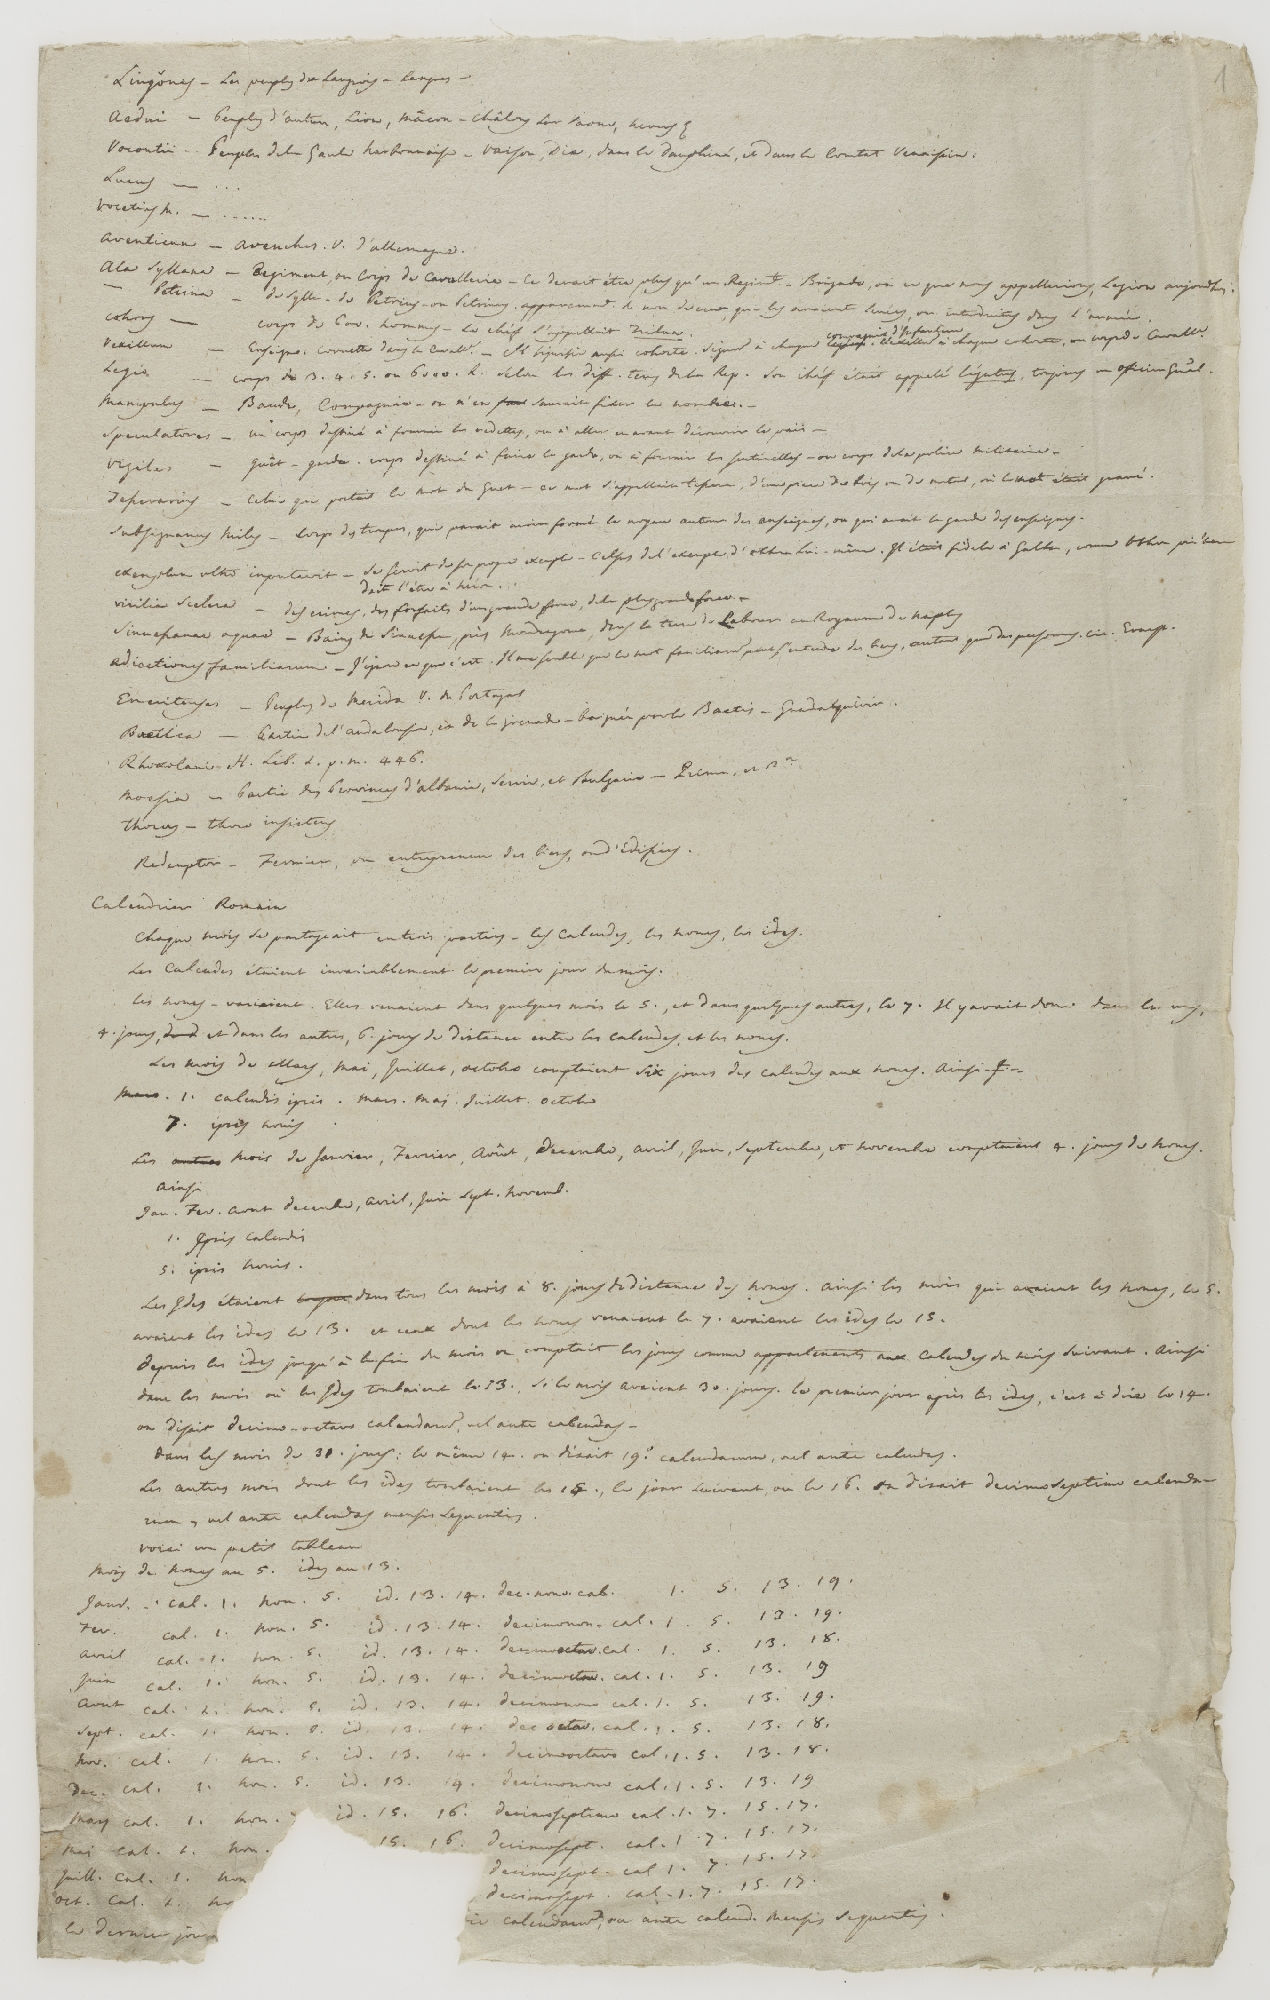 1
Lingones – Les peuples de Langrois – Langres –
Aedui – Peuples d'autun, Lion, Mâcon – Châlons sur Saone, nevers &
Vocontii – Peuples de la Gaule narbonnaise – Vaison, Die, dans le Dauphiné, et dans le Comtat Venaissin.
Lucus — ...
Vocetius M. — ......
Aventicum – Avenches. V. d'allemagne.
Ala Syllana – Regiment, ou Corps de Cavallerie – Ce devait être plus qu'un Regimt – Brigade, ou ce que nous appellerions, Legion aujourd'hui.
— Petrina – de Sylla – de Petrius ou Petrinus. apparemment le nom de ceux, qui les avaient levées, ou introduites dans l'armée.
Cohors — corps de 600. hommes – Le chéf s'appellait Tribun.
compagnie d'Infanterie
Vexillum – Enseigne, cornette dans la Cavalle. – Il signifie aussi cohorte. à chaque cohorte, ou corps de Cavalle.
Legio – corps de 3. 4. 5. ou 6000. h. selon les diff. tems de la Rep. Son chéf était appelé légatus, toujours un officier Gnal.
Manipulus – Bande, Compagnie – on n'en saurait fixer le nombre. –
Speculatores – un corps destiné à fournir les vedettes, ou à aller en avant découvrir le païs –
Vigiles – guêt – garde. corps destiné à faire la garde, ou à fournir les sentinelles – ou corps de la police militaire –
Tesserarius – Celui qui portait le mot du Guet – ce mot s'appellait tessera, d'une piece de bois ou de metal, où le mot était gravé.
Subsignanus Miles – Corps de troupes, qui parait avoir formé le noyau autour des enseignes, ou qui avait la garde des enseignes.
exemplum ultro imputavit – se servit de son propre exemple – Celsus de l'exemple d'othon lui-même. Il était fidele à Galba, comme Othon
doit l'être à
virilia scelera – des crimes, des forfaits d'une grande force, de la plus grande force –
Sinuessanae aquae – Bains de Sinuesse, près Mondragone, dans la terre de Labour au Royaume de Naples
adiectiones familiarum – J'ignore ce que c'est. Il me semble que le mot familiarum peut s'entendre des biens, autant que des personnes.
Emeritenses – Peuples de Merida V. de Portugal
Baetica – Partie de l'andalousie, et de la grenade – baignée par le Baetis – Guadalquivir.
Rhoxolani. H. Lib. 1. p. m. 446.
Moesia – Partie des Provinces d'albanie, Servie, et Bulgarie –
Thorax – thorace insistens
Redemptor – Fermier, ou entrepreneur des biens, ou d'édifices.
Calendrier Romain
Chaque mois se partageait en trois parties – les calendes, les nones, les ides.
Les Calendes étaient invariablement le premier jour du mois.
les nones – variaient. Elles venaient dans quelques mois le 5., et dans quelques autres, le 7. Il y avait donc dans les uns,
4. jours, et dans les autres, 6. jours de distance entre les calendes, et les nones.
Les mois de Mars, Mai, Juillet, octobre comptaient six jours des calendes aux nones. Ainsi –
Mars. 1. calendis ipsis. Mars. Mai. Juillet. octobre
7. ipsis nonis
Les autres mois de Janvier, Fevrier, Août, Decembre, avril, Juin, Septembre, et novembre comptaient 4. jours de nones.
ainsi
Jan. Fev. aout decembre, avril, Juin Sept. novemb.
1. Ipsis calendis
5. ipsis nonis.
Les Ides étaient dans tous les mois à 8. jours de distance des nones. Ainsi les mois qui avaient les nones, le 5.
avaient les ides le 13. et ceux dont les nones venaient le 7. avaient les ides le 15.
Depuis les ides jusqu'à la fin du mois on comptait les jours comme appartenants aux calendes du mois suivant. Ainsi
dans les mois où les Ides tombaient le 13., si le mois avaient 30. jours. le premier jour après les ides, c'est à dire le 14.
on disait decimo-octavo calendarum, vel ante calendas –
Dans les mois de 31. jours: le même 14. on disait 19.o calendarum, vel ante calendas.
Les autres mois dont les ides tombaient le 15., le jour suivant, ou le 16. on disait decimoseptimo calenda-
rum, vel ante calendas mensis sequentis.
voici un petit tableau
Mois de nones au 5. ides au 13.
Janv. cal. 1. non. 5. id. 13. 14. dec. nono. cal. 1. 5. 13. 19.
Fev. cal. 1. non. 5. id. 13. 14. decimonon. cal. 1 5. 13. 19.
avril cal. 1. non. 5. id. 13. 14. decimooctav. cal. 1. 5. 13. 18.
Juin cal. 1. non. 5. id. 13. 14. decimooctav. cal. 1. 5. 13. 19
aout cal. 1. non. 5. id. 13. 14. decimonono cal. 1. 5. 13. 19.
sept. cal. 1. non. 5. id. 13. 14. dec octav. cal. 1. 5. 13. 18.
nov. cal. 1. non. 5. id. 13. 14. decimooctavo cal. 1. 5. 13. 18.
Dec. cal. 1. non. 5. id. 13. 14. decimonono cal. 1. 5. 13. 19
Mars cal. 1. non. id. 15. 16. decimoseptimo cal. 1. 7. 15. 17.
Mai cal. 1. non. 15. 16. decimosept. cal. 1 7. 15. 17.
Juill. cal. 1. non decimosept. cal 1. 7. 15. 17
oct. cal. 1. no decimosept. cal. 1. 7. 15. 17.
le dernier jour calendarum, ou ante calend. mensis sequentis.